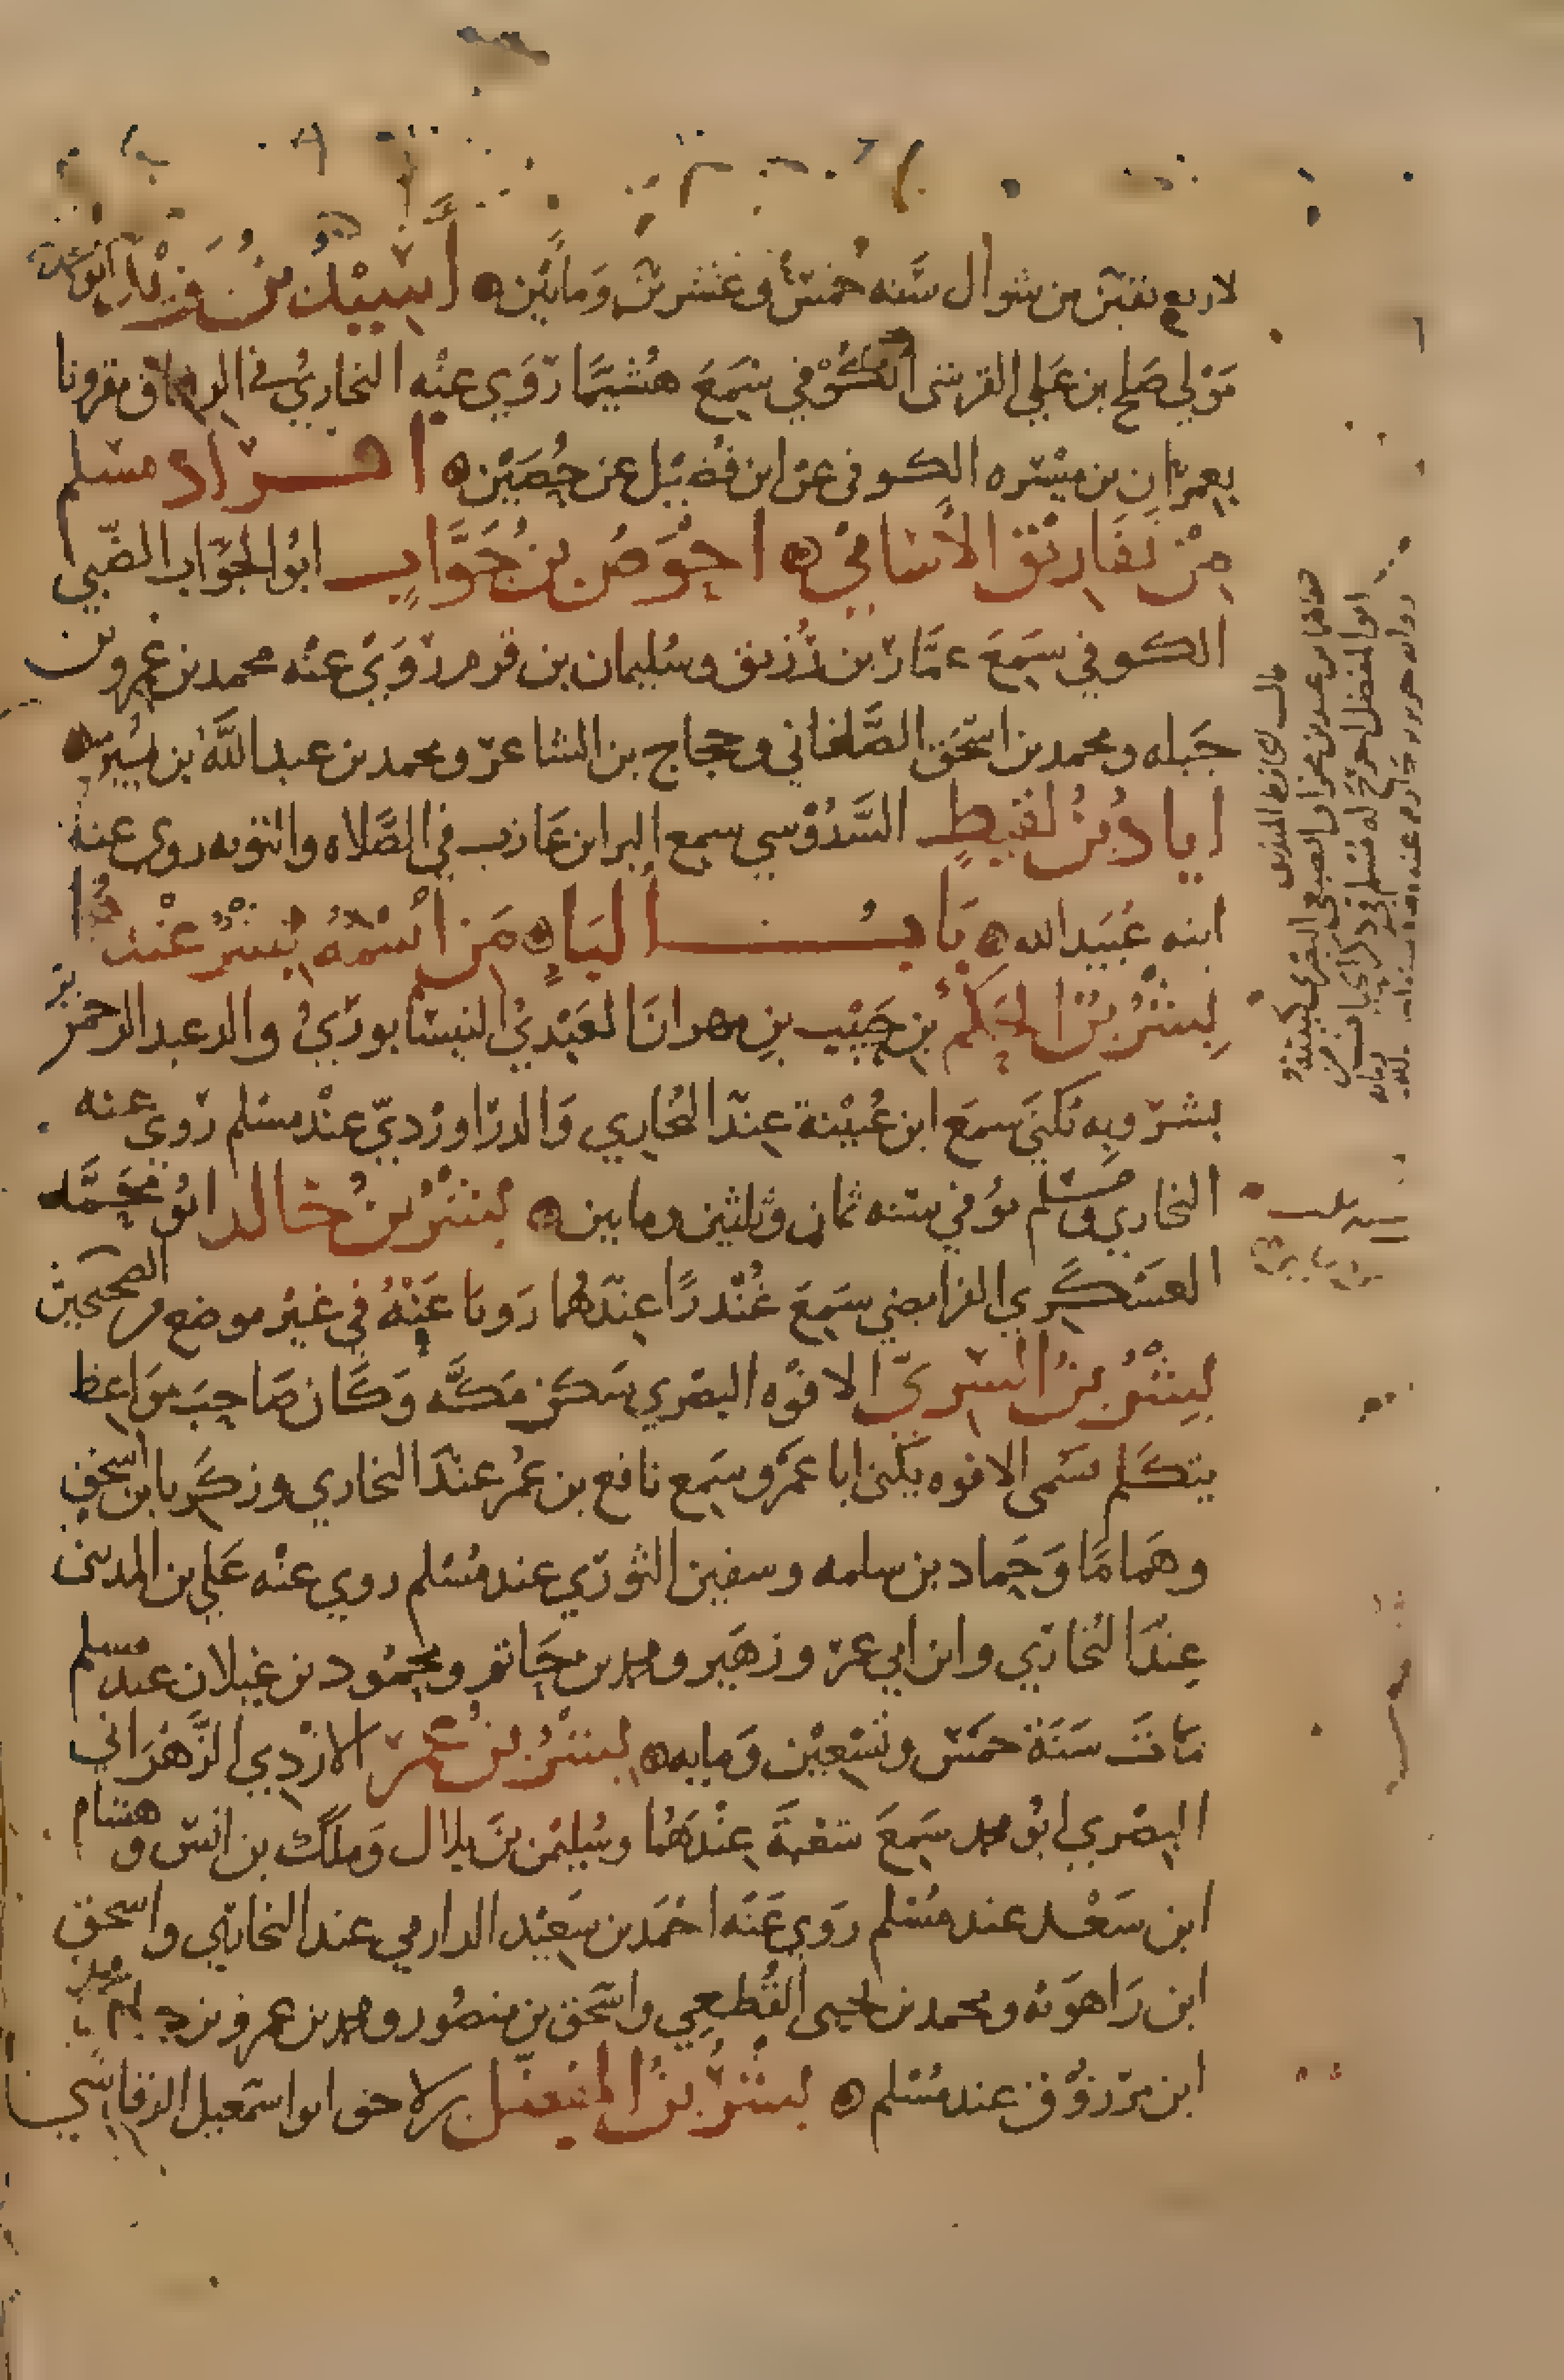 لاربع بقين من شوال سنه خمس وعشرين ومايتين ۞ أَسِيْدُ بنُ زَيْدٍ ابو
مَوْلي صَلح بن عَلي القرشى الكُوْفي سَمِعَ هُشَيمًا رَوَي عنْه البخاريُ في الرقاق مقرونا
بعمران بن ميْسَره الكوفى عن ابن فُضَيْل عن حُصَيْن ۞ افراد مسلم
مِنْ تَفَارِيْق الأسَامِيْ ۞ احْوَصُ بنُ جَوَّابٍ ابُو الجَوَّاب الضّبي
الكوفي سَمِعَ عمَّار بن رُزيق وسُليمان بن قرم رَوَيَ عنْه محمد بن عَمرو بن
جَبله ومحمد بن اسْحَق الصَّاغاني وحجاج بن الشاعر ومحمد بن عبد اللَّه بن نُمَير ۞
ايادُ بنُ لَقيطٍ السَّدُوْسي سمع البرا بن عَازب في الصَّلاه والتوبه روي عنه
ابنه عُبَيد الله ۞ بَابُ البَاءِ ۞ مَن اسْمُهُ بِشْرٌ عنْدهُما
بِشْرُ بنُ الحَكَم بن حَبِيْب بنِ مهران العَبْديُ النيسَابوريُ والد عبد الرحمن بن
بشر وبِه يُكنَي سمعَ ابن عُيَيْنة عِندَ البُخاري وَالدرَاوَرْديّ عنْد مسلم رَوي عنه
البخاري ومُسلم توُفي سنه ثمان وثلثين ومايتين ۞ بِشْرُ بنُ خَالد ابُو مُحَمَّد
العَسْكَري الفرايضي سَمِعَ غُنْدرًا عِندَهُما رَويَا عَنْهُ في غيْر موضع من الصحيحين
بِشْرُ بنُ السَّرِيّ الافوه البصْري سَكَن مَكَّه وَكَان صَاحِبَ مَوَاعظ
يتكلم سَمي الافوه يكني ابا عَمْرو سَمِع نافع بن عُمر عندَ البخاري وزكريا بن اسحق
وهَمامًا وَحَماد بن سلمه وسفين الثوري عند مُسْلم روي عنْه عَلي بن المديني
عِندَ البُخاري وابن ابي عمر وزهير ومحمد بن حَاتم ومحمود بن غيلان عند مسلم
مَاتَ سَنَة خمَس وتسْعِيْن وَمايه ۞ بِشْرُ بنُ عُمر الازْدِي الزَّهْرَاني
البصْري ابُو محمد سَمِعَ شعْبَة عِنْدَهُما وسُليمْن بنَ بلال وَملكَ بن انس وهشام
ابن سَعْد عند مُسْلم رَوي عَنْه احْمَد بن سَعِيْد الدارمي عند البخاري واسحق
ابن رَاهَوَيْه ومحمد بن يحيى القُطَعِي واسْحَق بن منصُور ومحمد بن عمرو بن
ابن مرزوق عند مُسْلم ۞ بِشْرُ بنُ المُفَضَّل بن لاحق ابو اسمعيل الرقاشي